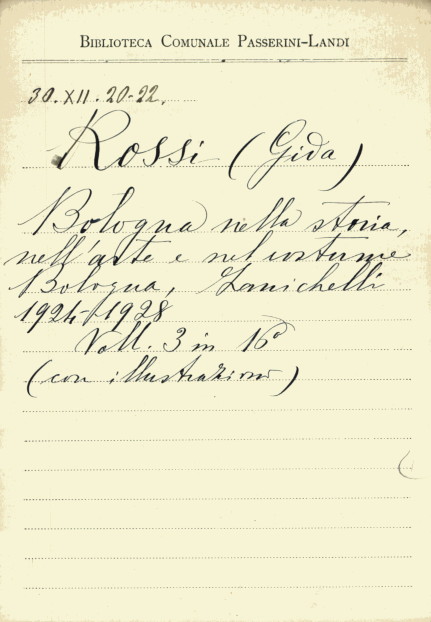 BIBLIOTECA COMUNALE PASSERINI-LANDI
30.XII.20-22.
Rossi (Gida)
Bologna nella storia,
nell'arte e nel costume
Bologna, Zanichelli
1924-1928
Voll. 3 in 16º
(con illustrazioni)